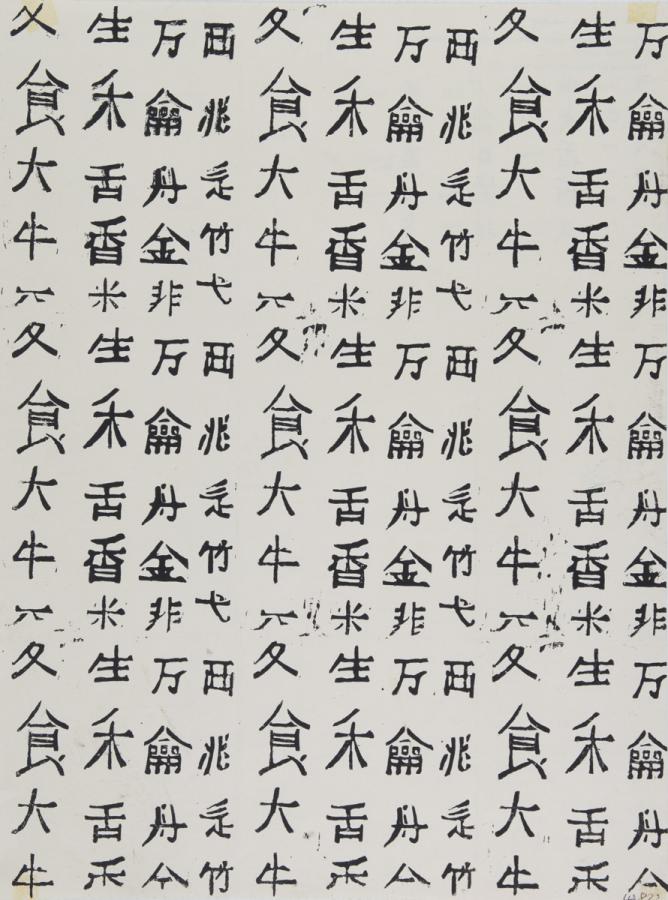 夂 生 万 西 夂 生 万 西 夂 生 万
食 禾 龠 兆 食 禾 龠 兆 食 禾 龠
大 舌 丹 辵 大 舌 丹 辵 大 舌 丹
牛 香 金 竹 牛 香 金 竹 牛 香 金
六 米 非 弋 六 米 非 弋 六 米 非
夂 生 万 西 夂 生 万 西 夂 生 万
食 禾 龠 兆 食 禾 龠 兆 食 禾 龠
大 舌 丹 辵 大 舌 丹 辵 大 舌 丹
牛 香 金 竹 牛 香 金 竹 牛 香 金
六 米 非 弋 六 米 非 弋 六 米 非
夂 生 万 西 夂 生 万 西 夂 生 万
食 禾 龠 兆 食 禾 龠 兆 食 禾 龠
大 舌 丹 辵 大 舌 丹 辵 大 舌 丹
牛 竹 牛 竹 牛